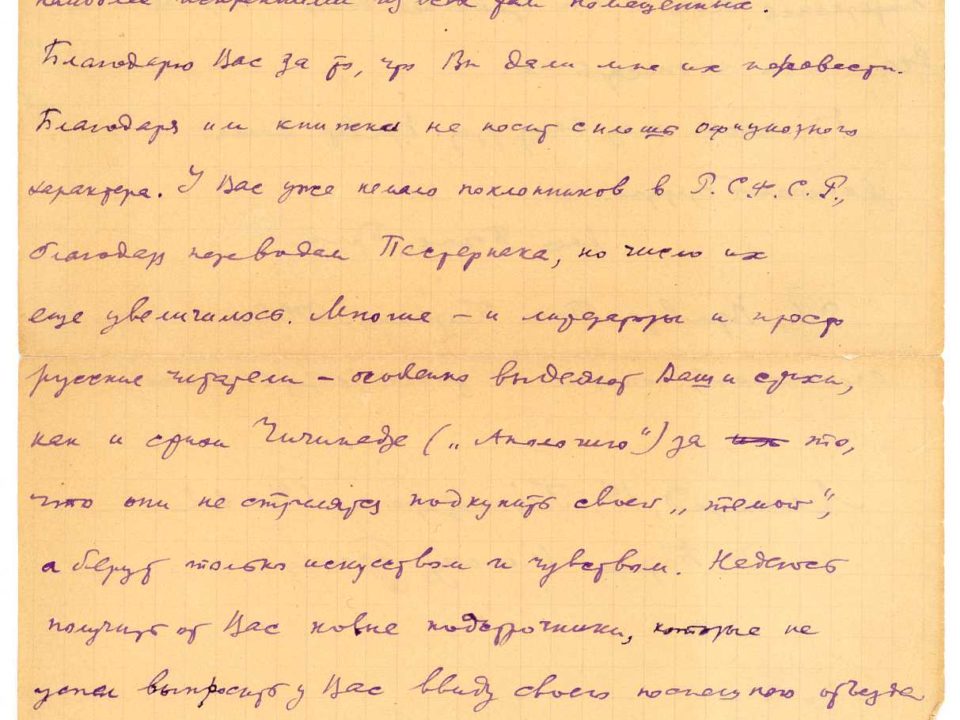 наиболее искренними из всех там помещенных.
Благодарю Вас за то, что Вы дали мне их перевести.
Благодаря им книжка не носит сплошь официозного
характера. У Вас уже немало поклонников в Р.С.Ф.С.Р.,
благодаря переводам Пастернака, но число их
еще увеличилось. Многие – и литераторы и просто
русские читатели – особенно выделяют Ваши стихи,
как и стихи Чичинадзе („Апологию“) за то,
что они не стремятся подкупить своей „темой“,
а берут только искусством и чувством. Надеюсь
получить от Вас новые подстрочники, которые не
успел выпросить у Вас ввиду своего поспешного отъезда